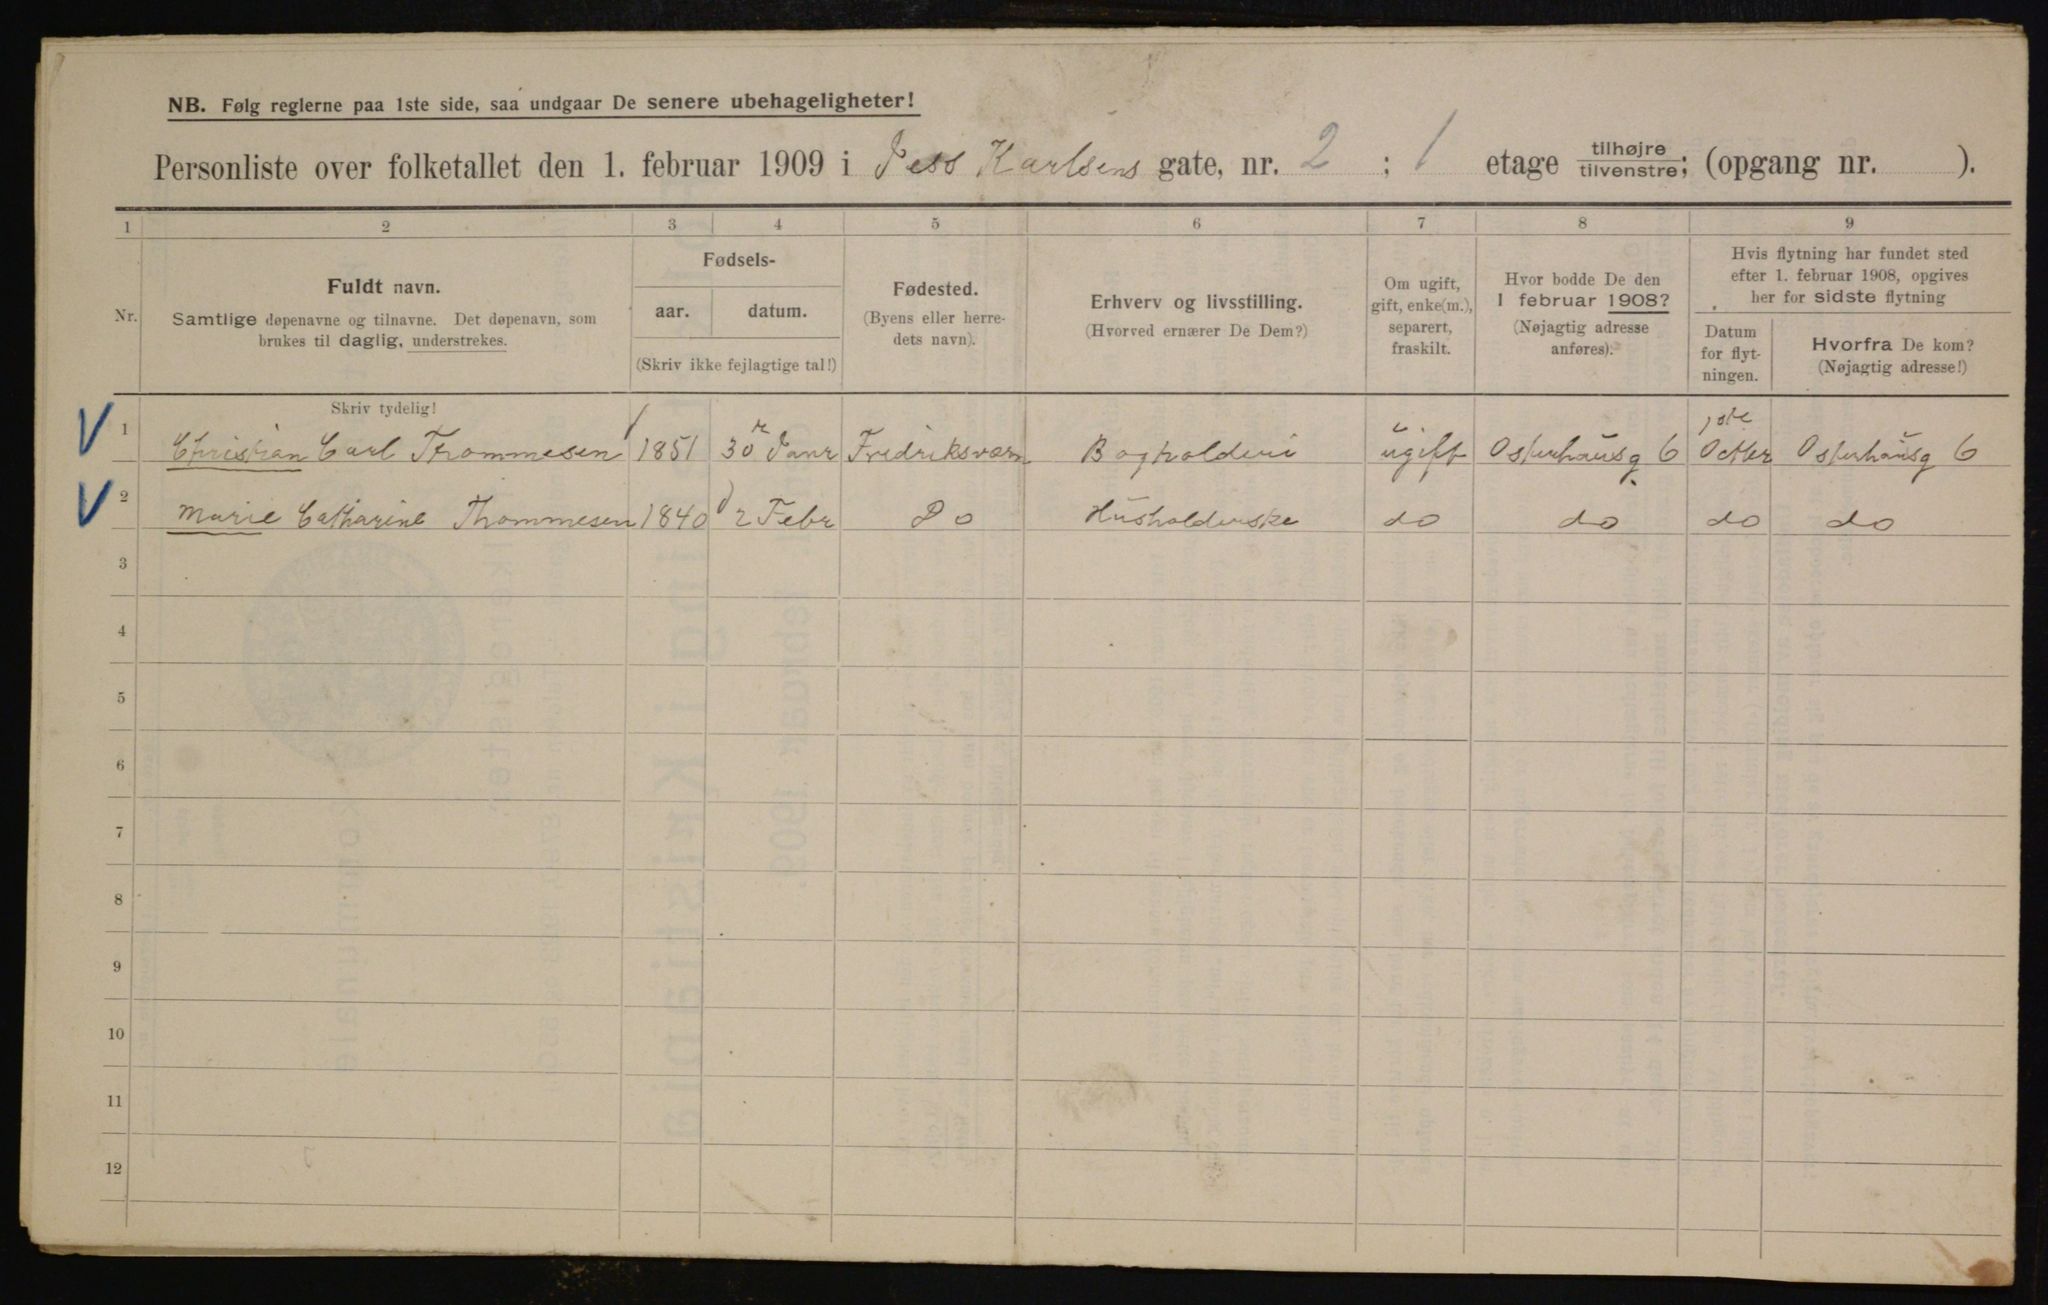 NB. Følg reglerne paa 1ste side, saa undgaar De senere ubehageligheter!
Personliste over folketallet den 1. februar 1909 i Jess Karlsens gate, nr. 2 ; 1 etage tilhøjre/tilvenstre; (opgang nr. ).
1 2 3 4 5 6 7 8 9
Nr.
Fuldt navn.
Samtlige døpenavne og tilnavne. Det døpenavn, som
brukes til daglig, understrekes.
Skriv tydelig!
Fødsels-
aar. datum.
(Skriv ikke fejlagtige tal!)
Fødested.
(Byens eller herre-
dets navn).
Erhverv og livsstilling.
(Hvorved ernærer De Dem?)
Om ugift,
gift, enke(m.),
separert,
fraskilt.
Hvor bodde De den
1 februar 1908?
(Nøjagtig adresse
anføres).
Hvis flytning har fundet sted
efter 1. februar 1908, opgives
her for sidste flytning
Datum
for flyt-
ningen.
Hvorfra De kom?
(Nøjagtig adresse!)
1 Christian Carl Thommesen 1851 30 Janr Fredriksværn Bogholderi ugift Osterhausg 6 1ste Octbr Osterhausg 6
2 Marie Catharine Thommesen 1840 2 Febr Do Husholderske do do do do
3
4
5
6
7
8
9
10
11
12